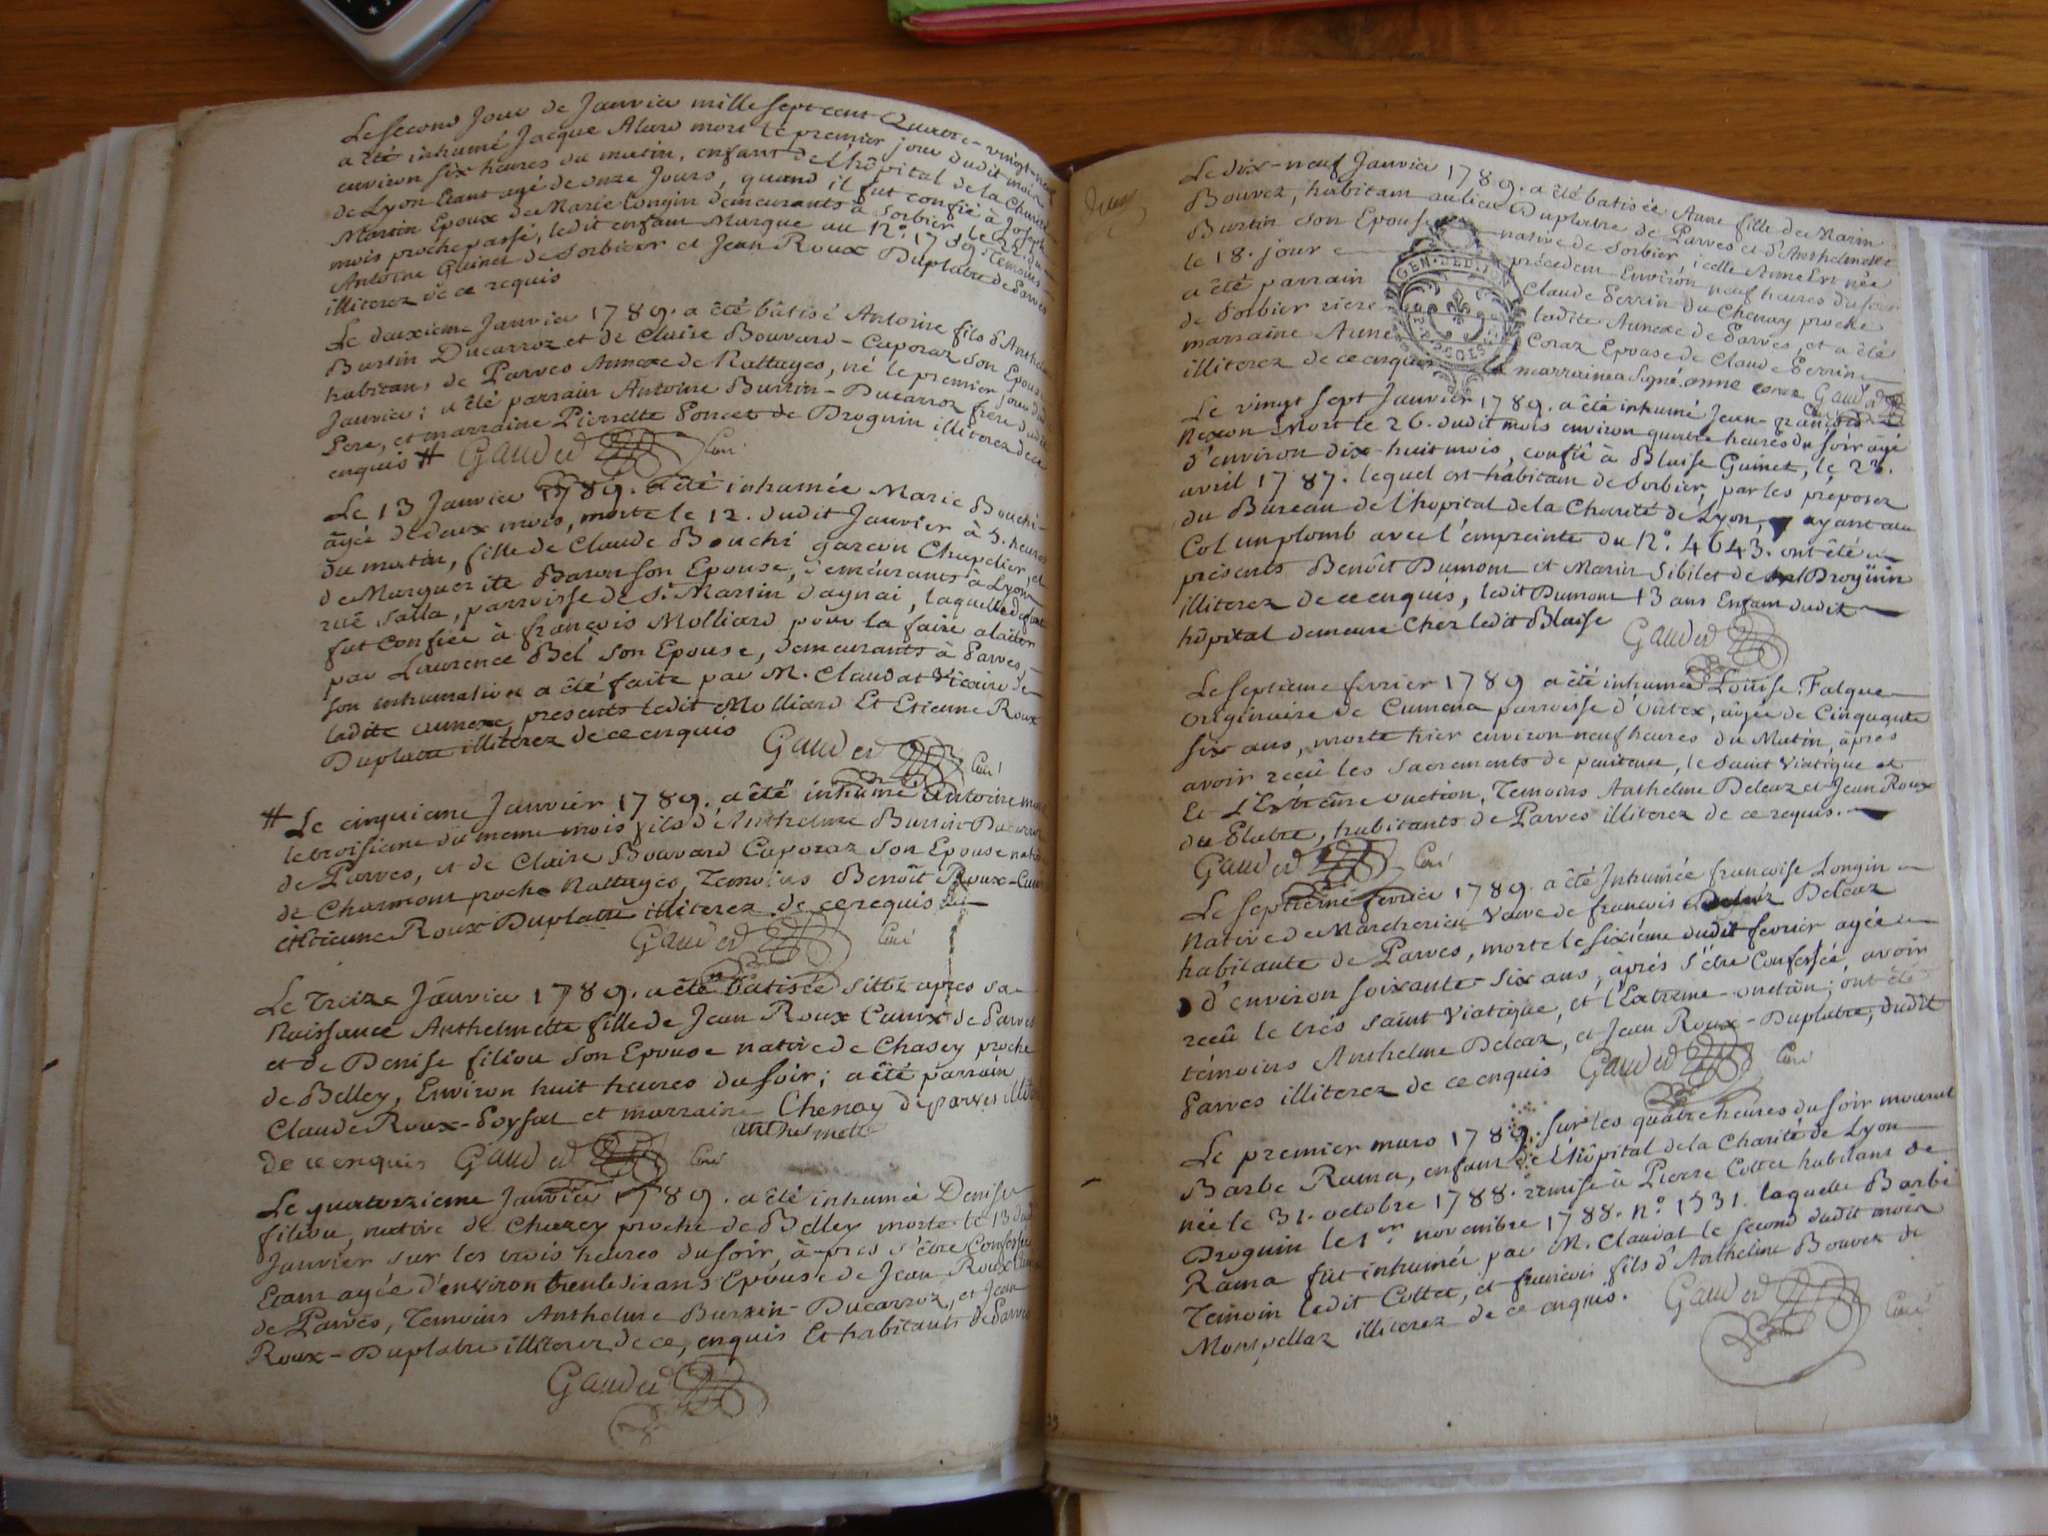 Le second Jour de Janvier mille sept cent Quatre-vingt-neuf
a été inhumé Jacque Alard mort le premier jour dudit mois
environ six heures du matin, enfant de l'hôpital de la Charité
de Lyon étant agé de onze Jours, quand il fut confié à Joseph
Martin Epoux de Marie Longin demeurants à Sorbier le 22. du
mois proche passé, ledit enfant Marque au N°. 1789. Temoins
Antoine Guinet de Sorbier et Jean Roux Duplatre de Parves
illiterez de ce requis
Le deuxieme Janvier 1789. a été bâtisé Antoine fils d'Anthelme
Burtin Ducarroz et de Claire Bouvard-Caporaz son Epouse
habitans de Parves Annexe de Nattages, né le premier jour dudit
Janvier; a été parrain Antoine Burtin-Ducarroz frere dudit
Pere, et marraine Pierrette Poncet de Drognin illiterez de ce
enquis # Gauded Curé
Le 13 Janvier 1789. a été inhumée Marie Bouchi
âgée de deux mois, morte le 12. dudit Janvier à 5. heures
du matin, fille de Claude Bouchi garçon Chapelier, et
de Marguerite Baron son Epouse, demeurants à Lyon
rüe Salla, parroisse de St. Martin d'aynai, laquelle defunte
fut confiée à françois Molliard pour la faire alaiter
par Laurence Bel son Epouse, demeurants à Parves,
son inhumation a été faite par M. Claudat Vicaire de
ladite annexe, presents ledit Molliard Et Etienne Roux
Duplatre illiterez de ce enquis Gauded Curé
# Le cinquieme Janvier 1789. a été inhumé Antoine mort
le troisieme du meme mois fils d'Anthelme Burtin-Ducarroz
de Parves, et de Claire Bouvard Caporaz son Epouse native
de Charmont proche Nattages, Temoins Benoît Roux-Cunix
et Etienne Roux Duplatre illiterez de ce requis
Gauded Curé
Le Treize Janvier 1789. a été batisée sitôt apres sa
Naissance Anthelmette fille de Jean Roux Cunix de Parves
et de Denise filiou son Epouse native de Chasey proche
de Belley, Environ huit heures du soir; a été parrain
Claude Roux-Poysat et marraine Chenay de parves illiterez
anthelmette
de ce enquis Gauded Curé
Le quatorzieme Janvier 1789. a été inhumée Denise
filiou, native de Chazey proche de Belley morte le 13 dudit
Janvier sur les trois heures du soir, après s'être Confessée
Etant agée d'environ trente six ans Epouse de Jean Roux Cunix
de Parves, Temoins Anthelme Burtin-Ducarroz, et Jean
Roux-Duplatre illiterez de ce, enquis Et habitants de Parves
Gauded
Le dix-neuf Janvier 1789. a été batisée Anne fille de Marin
Bouvez, habitant au lieu Duplatre de Parves et d'Anthelmette
Burtin son Epouse native de Sorbier; icelle Anne Est née
le 18. jour precedent Environ neuf heures du soir
a été parrain Claude Perrin du Chenay proche
de Sorbier riere ladite Annexe de Parves, et a été
marraine Anne Coraz Epouse de Claude Perrin
illiterez de ce enquis la marraine a signé anne coraz Gauded Curé
GEN. DE DIJON
Le vingt sept Janvier 1789. a été inhumé Jean-françois
Nexon Mort le 26. dudit mois environ quatre heures du soir âgé
d'environ dix-huit mois, confié à Blaise Guinet, le 23.
avril 1787. lequel est habitant de Sorbier, par les préposez
du Bureau de l'hopital de la Charité de Lyon, ayant au
Col un plomb avec l'empreinte du N°. 4643. ont été
présents Benôit Dumont et Marin Sibilet de Drognin
illiterez de ce enquis, ledit Dumont 13 ans Enfant dudit
hôpital demeure Chez ledit Blaise Gauded
Le septieme fevrier 1789 a été inhumée Loüise Falque
originaire de Cumena parroisse d'Ontex, âgée de Cinquante
six ans, morte hier environ neuf heures du Matin, après
avoir reçû les sacrements de penitence, le saint viatique et
Et L'Extrême onction, Temoins Anthelme Deleaz et Jean Roux
du Platre, habitants de Parves illiterez de ce requis.
Gauded Curé
Le septieme fevrier 1789. a été Inhumée francoise Longin
Native de Marcherieu Veuve de francois Deleaz
habitante de Parves, morte le sixième dudit fevrier agée
d'environ soixante-six ans, après s'être Confessée, avoir
reçû le trés saint Viatique, et l'Extreme-onction; ont été
témoins Anthelme Deleaz, et Jean Roux-Duplatre, dudit
Parves illiterez de ce enquis Gauded Curé
Le premier mars 1789. sur les quatre heures du soir mourut
Barbe Rama, enfant de l'hôpital de la Charité de Lyon
née le 31. octobre 1788. remise à Pierre Cottet habitant de
Drognin le 1er novembre 1788. N°. 1531. laquelle Barbe
Rama fut inhumée par M. Claudat le second dudit mois
Temoin ledit Cottet, et francois fils d'Anthelme Bouvet de
Montpellaz illiterez de ce enquis. Gauded Curé